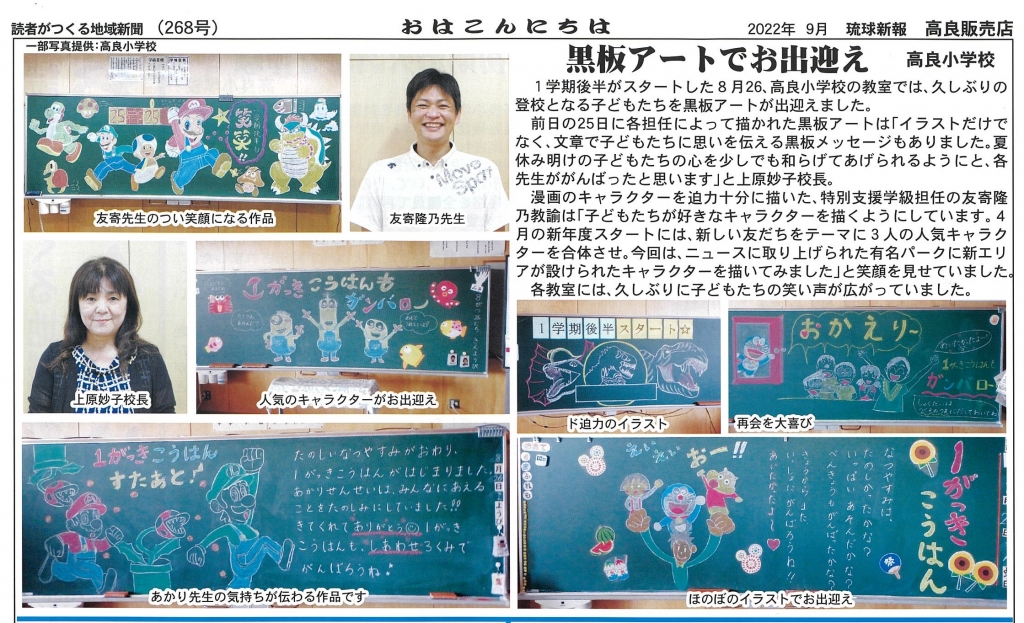 読者がつくる地域新聞 (268号)
おはこんにちは
2022年 9月 琉球新報 高良販売店
一部写真提供:高良小学校
黒板アートでお出迎え 高良小学校
1学期後半がスタートした8月26、高良小学校の教室では、久しぶりの
登校となる子どもたちを黒板アートが出迎えました。
前日の25日に各担任によって描かれた黒板アートは「イラストだけで
なく、文章で子どもたちに思いを伝える黒板メッセージもありました。夏
休み明けの子どもたちの心を少しでも和らげてあげられるようにと、各
先生ががんばったと思います」と上原妙子校長。
漫画のキャラクターを迫力十分に描いた、特別支援学級担任の友寄隆
乃教諭は「子どもたちが好きなキャラクターを描くようにしています。4
月の新年度スタートには、新しい友だちをテーマに3人の人気キャラク
ターを合体させ、今回は、ニュースに取り上げられた有名パークに新エリ
アが設けられたキャラクターを描いてみました」と笑顔を見せていました。
各教室には、久しぶりに子どもたちの笑い声が広がっていました。
笑笑!!
友寄先生のつい笑顔になる作品
Move Sport
友寄隆乃先生
上原妙子校長
1がっき こうはんも
ガンバロー
人気のキャラクターがお出迎え
1学期後半スタート☆
ド迫力のイラスト
おかえり~
1がっきこうはんも
ガンバロー
再会を大喜び
1がっきこうはん
すたあと!
たのしいなつやすみがおわり、
1がっきこうはんがはじまりました。
あかりせんせいは、みんなにあえる
ことをたのしみにしていました!!
きてくれてありがとう 1がっき
こうはんも、しあわせろくみで
がんばろうね♪
あかり先生の気持ちが伝わる作品です
えいえい おー!!
1がっき
こうはん
なつやすみは、
たのしかったかな?
いっぱいあそんだかな?
べんきょうもがんばったかな?
きょうからまた
いっしょにがんばろうね!!
あいたかったよ~♥
祭
ほのぼのイラストでお出迎え